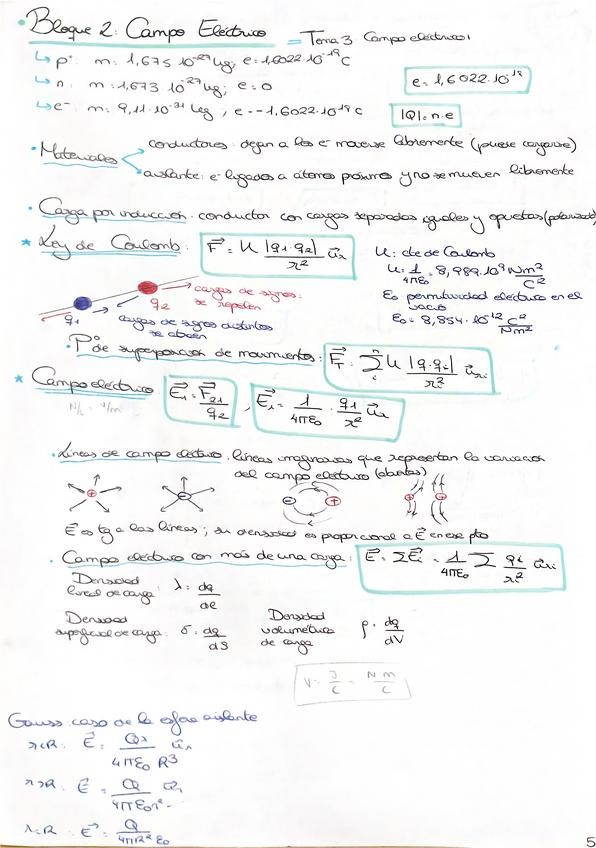 • Bloque 2: Campo Eléctrico = Tema 3 Campo eléctrico 1
↳ p⁺ m: 1,675 10⁻²⁷ kg; e: 1,6022·10⁻¹⁹ C
↳ n: m: 1,673 10⁻²⁷ kg; e: 0
e = 1,6022·10⁻¹⁹
↳ e⁻ m: 9,11·10⁻³¹ kg, e = -1,6022·10⁻¹⁹ C
|Q| = n·e
• Materiales
conductores: dejan a los e⁻ moverse libremente (puede cargarse)
aislante: e⁻ ligados a átomos próximos y no se mueven libremente
• Carga por inducción: conductor con cargas separadas iguales y opuestas (polarizado)
* Ley de Coulomb: F⃗ = K |q₁·q₂| / r² u⃗r
K: cte de Coulomb
K: 1/4πε₀ = 8,989·10⁹ Nm²/C²
ε₀ permitividad eléctrica en el vacío
ε₀ = 8,854·10⁻¹² C²/Nm²
cargas de signos: se repelen
q₁ q₂
cargas de signos distintos se atraen
• Pº de superposición de movimientos: F⃗T = Σ K |q·qᵢ| / rᵢ² u⃗rᵢ
* Campo eléctrico E⃗₁ = F⃗₂₁ / q₂ , E⃗₁ = 1/4πε₀ · q₁/r² u⃗r
N/C = V/m
• Líneas de campo eléctrico: líneas imaginarias que representan la variación
del campo eléctrico (abiertas)
+ - - + + +
E⃗ es tg a las líneas; su densidad es proporcional a E⃗ en ese pto
• Campo eléctrico con más de una carga: E⃗ = ΣE⃗ᵢ = 1/4πε₀ Σ qᵢ/r² u⃗rᵢ
Densidad lineal de carga: λ = dq/dl
Densidad superficial de carga: σ = dq/dS
Densidad volumétrica de carga ρ = dq/dV
V = J/C = N m/C
Gauss caso de la esfera aislante
r<R: E⃗ = Qr / 4πε₀ R³ u⃗r
r>R: E⃗ = Q / 4πε₀ r² u⃗r
r=R: E⃗ = Q / 4πR² ε₀
5